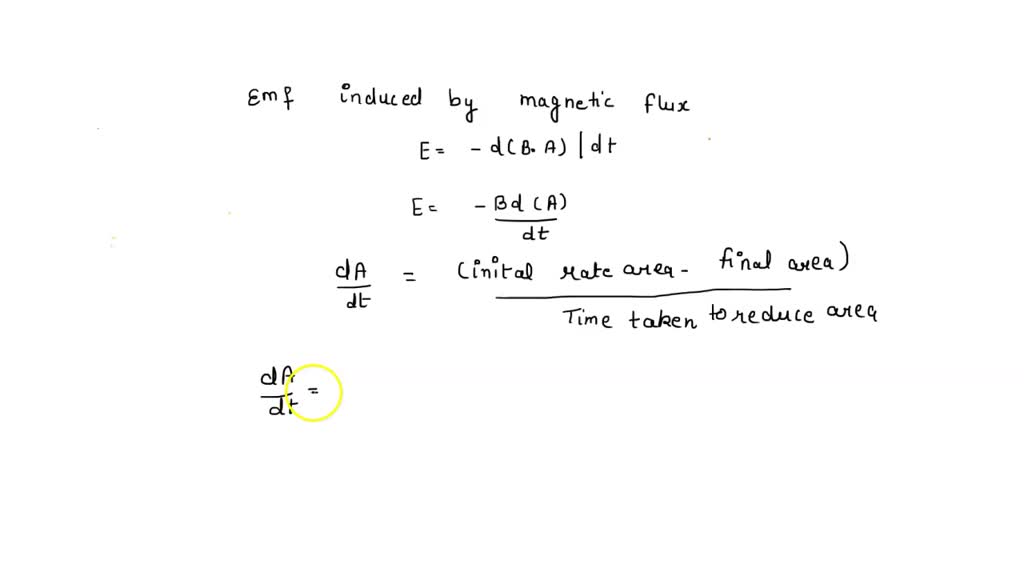 Emf induced by magnetic flux
E = - d(B. A) | dt
E = - Bd (A)
dt
dA = (inital rate area - final area)
dt Time taken to reduce area
dA =
dt